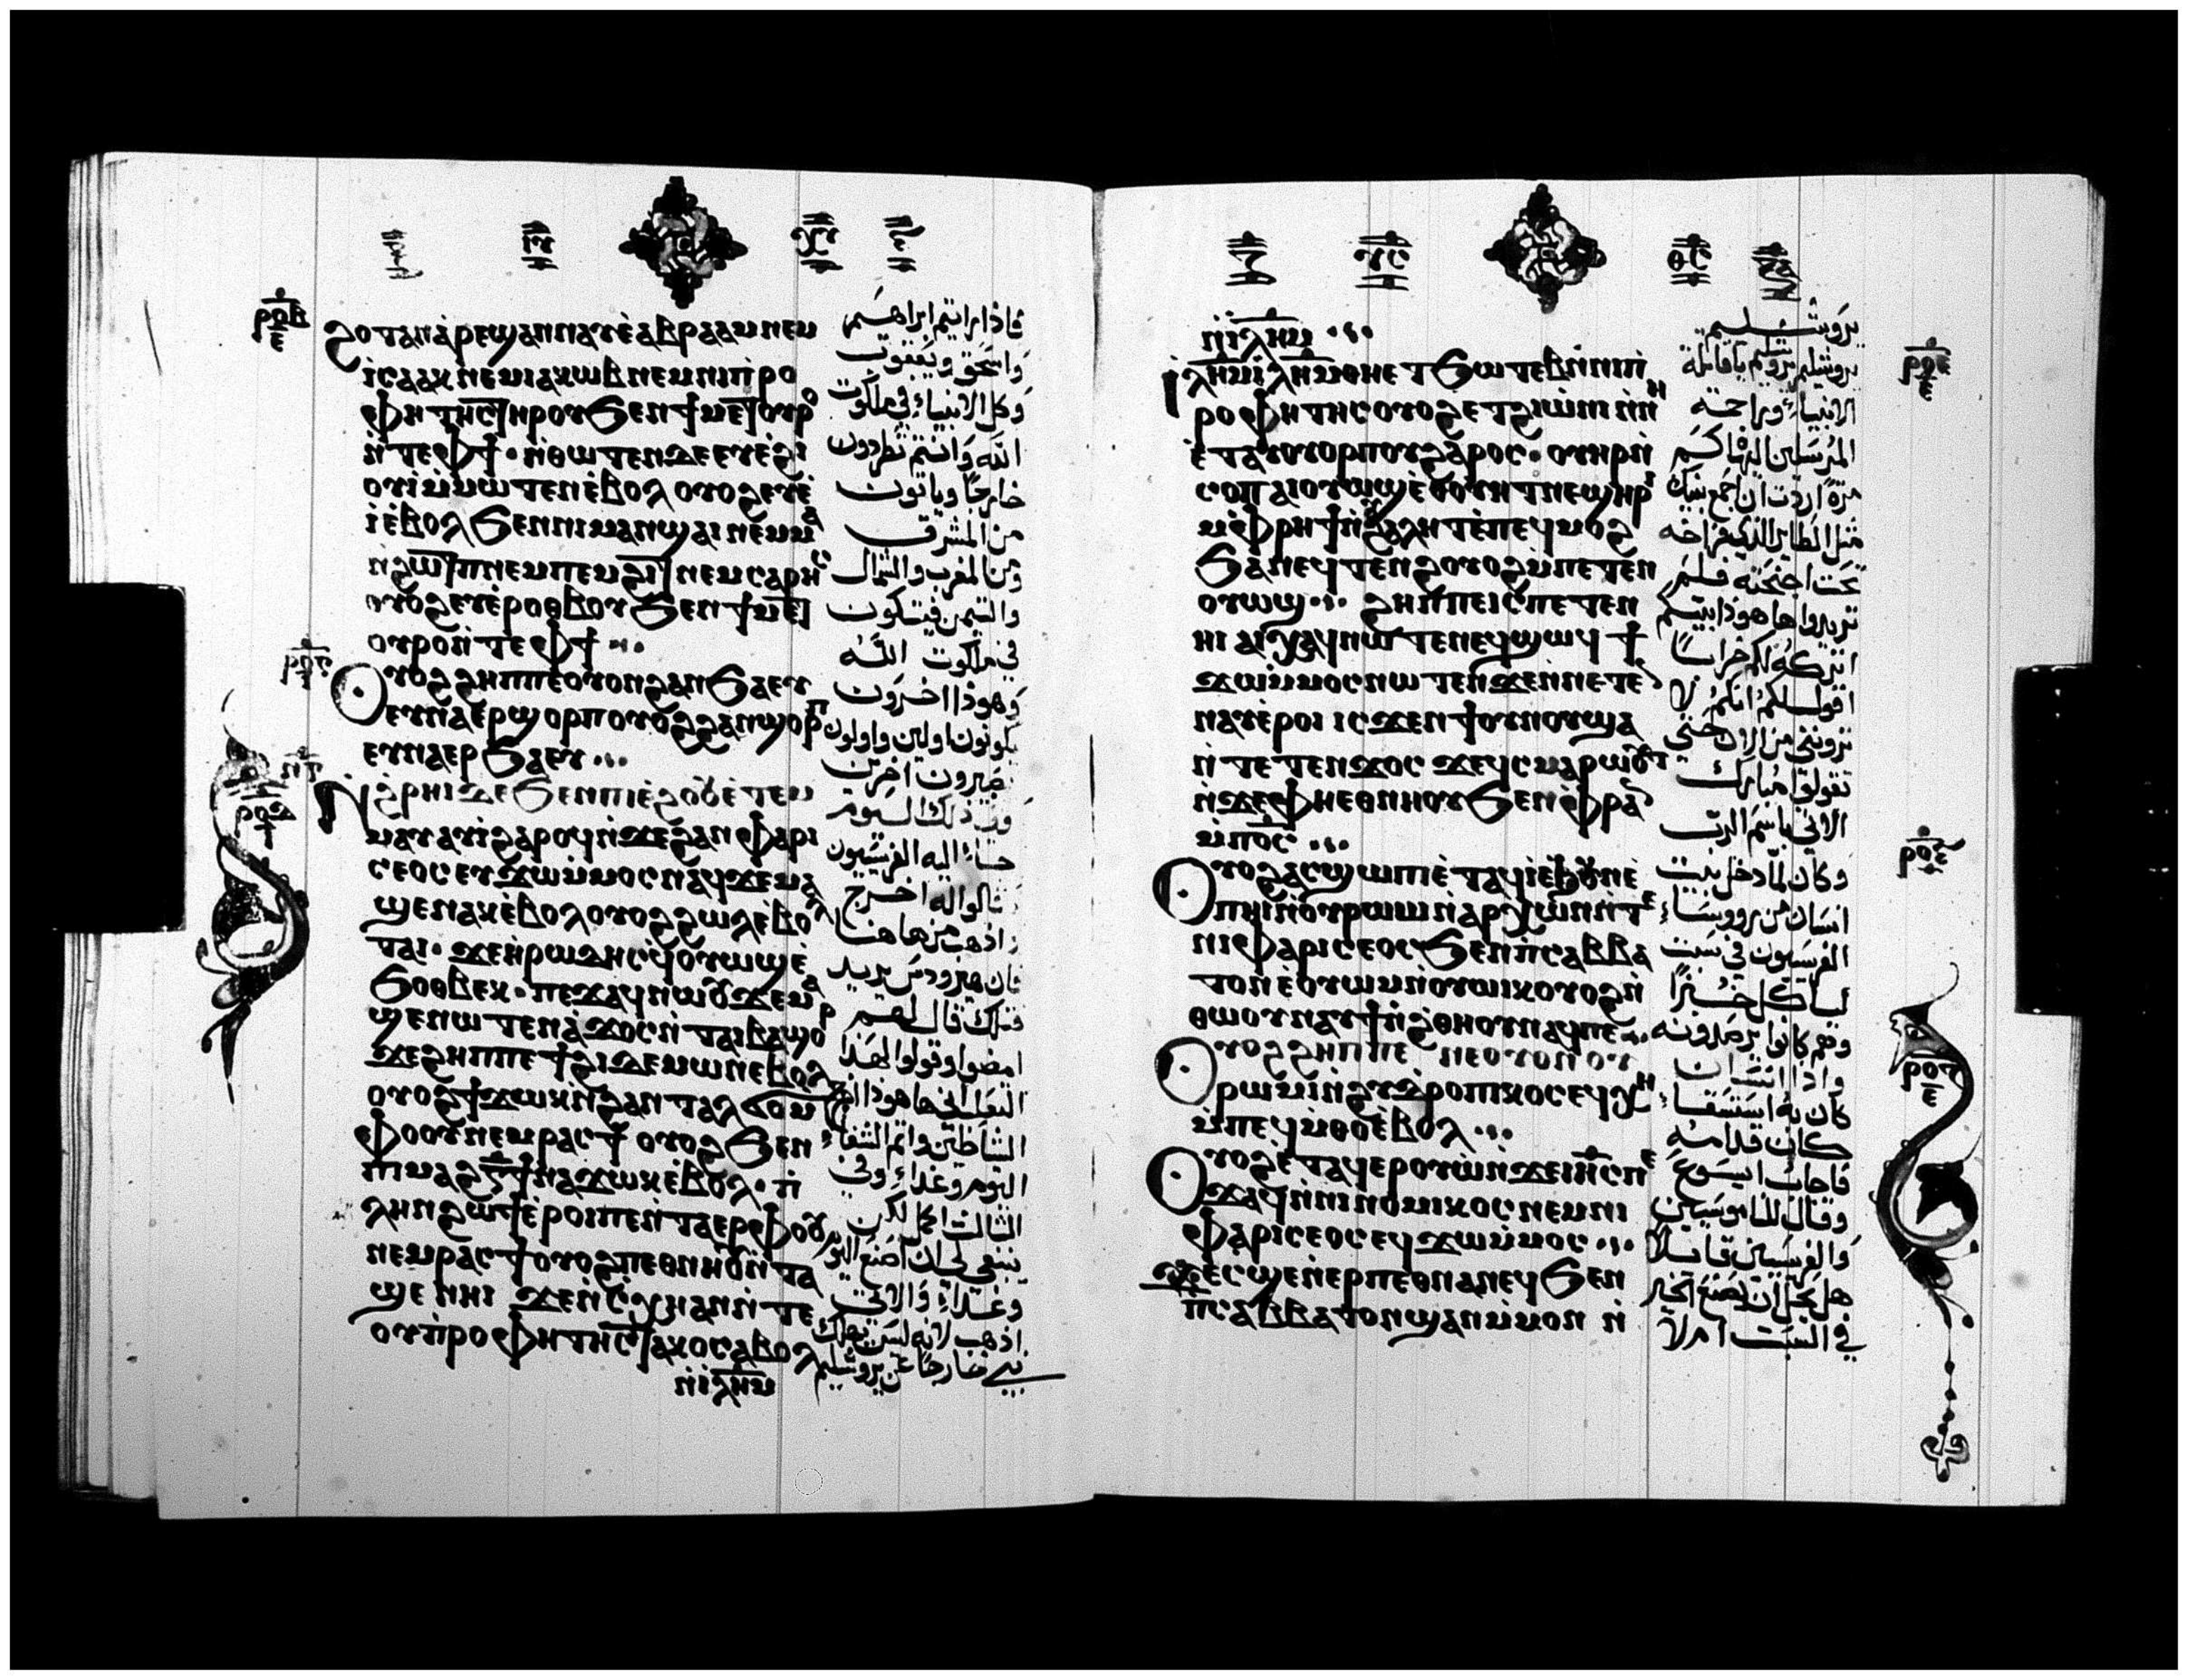 ⲣⲟⲃ
ϩⲟⲧⲁⲛ ⲁⲣⲉϣⲁⲛⲛⲁⲩ ⲉⲁⲃⲣⲁⲁⲙ ⲛⲉⲙ
ⲓⲥⲁⲁⲕ ⲛⲉⲙ ⲓⲁⲕⲱⲃ ⲛⲉⲙ ⲛⲓⲡⲣⲟ
ⲫⲏⲧⲏⲥ ⲧⲏⲣⲟⲩ ϧⲉⲛ ϯⲙⲉⲧⲟⲩⲣⲟ
ⲛⲧⲉ ⲫϯ · ⲛⲑⲱⲧⲉⲛ ⲇⲉ ⲉⲩⲉϩⲓ
ⲟⲩⲓ ⲙⲙⲱⲧⲉⲛ ⲉⲃⲟⲗ ⲟⲩⲟϩ ⲉⲩⲉ
ⲓ ⲉⲃⲟⲗ ϧⲉⲛ ⲛⲓⲙⲁⲛϣⲁⲓ ⲛⲉⲙ ⲙⲁ
ⲛϩⲱⲧⲡ ⲛⲉⲙ ⲡⲉⲙϩⲓⲧ ⲛⲉⲙ ⲥⲁⲣⲏⲥ
ⲟⲩⲟϩ ⲉⲩⲉⲣⲟⲑⲃⲟⲩ ϧⲉⲛ ϯⲙⲉⲧ
ⲟⲩⲣⲟ ⲛⲧⲉ ⲫϯ
ⲟⲩⲟϩ ϩⲏⲡⲡⲉ ⲟⲩⲟⲛ ϩⲁⲛϧⲁⲉⲩ
ⲉⲩⲛⲁⲉⲣϣⲟⲣⲡ ⲟⲩⲟϩ ϩⲁⲛϣⲟⲣⲡ
ⲉⲩⲛⲁⲉⲣϧⲁⲉⲩ
ⲛϩⲣⲏⲓ ⲇⲉ ϧⲉⲛ ⲡⲓⲉϩⲟⲟⲩ ⲉⲧⲉⲙ
ⲙⲁⲩ ⲁⲩⲓ ϩⲁⲣⲟϥ ⲛϫⲉ ϩⲁⲛⲫⲁⲣⲓ
ⲥⲉⲟⲥ ⲉⲩϫⲱ ⲙⲙⲟⲥ ⲛⲁϥ ϫⲉ ⲙⲁ
ϣⲉⲛⲁⲕ ⲉⲃⲟⲗ ⲟⲩⲟϩ ϩⲱⲗ ⲉⲃⲟⲗ
ⲧⲁⲓ · ϫⲉ ⲏⲣⲱⲇⲏⲥ ϥⲟⲩⲱϣ ⲉ
ϧⲟⲑⲃⲉⲕ · ⲡⲉϫⲁϥ ⲛⲱⲟⲩ ϫⲉ ⲙⲁ
ϣⲉⲛⲱⲧⲉⲛ ⲁϫⲟⲥ ⲛⲧⲁⲓⲃⲁϣⲟⲣ
ϫⲉ ϩⲏⲡⲡⲉ ϯϩⲓⲇⲉⲙⲱⲛ ⲉⲃⲟⲗ
ⲟⲩⲟϩ ϯϫⲱⲕ ⲛϩⲁⲛⲧⲁⲗϭⲟ ⲙ
ⲫⲟⲟⲩ ⲛⲉⲙ ⲣⲁⲥϯ ⲟⲩⲟϩ ϧⲉⲛ
ⲡⲓⲙⲁϩⲅϯⲛⲁϫⲱⲕ ⲉⲃⲟⲗ · ⲡ
ⲗⲏⲛ ϩⲱϯ ⲉⲣⲟⲓ ⲡⲉ ⲛⲧⲁⲉⲣ ⲫⲟⲟⲩ
ⲛⲉⲙ ⲣⲁⲥϯ ⲟⲩⲟϩ ⲡⲉⲑⲛⲏⲟⲩ ⲛⲧⲁ
ϣⲉ ⲛⲏⲓ ϫⲉ ⲛⲥⲭⲏ ⲁⲛ ⲛⲧⲉ
ⲟⲩⲡⲣⲟⲫⲏⲧⲏⲥ ⲧⲁⲕⲟ ⲥⲁⲃⲟⲗ
ⲛⲓⲗⲏⲙ
فاذا رايتم ابراهيم
واسحق ويعقوب
وكل الانبياء في ملكوت
الله وانتم تطردون
خارجًا وياتون
من المشرق
ومن المغرب والشمال
والتيمن فيتكون
في ملكوت الله
وهوذا اخرون
يكونون اولين واولون
يصيرون اخرين
وفي ذلك اليوم
جاء اليه الفريسيون
قالوا له اخرج
واذهب من هاهنا
فان هيرودس يريد
قتلك قال لهم
امضوا وقولوا لهذا
الثعلب اني هاهوذا اخرج
الشياطين واتم الشفاء
اليوم وغدا وفي
الثالث اكمل لكن
ينبغي لي ان اصنع اليوم
وغدًا والاتي
اذهب لانه ليس يهلك
نبي خارجًا عن يروشليم
ⲛⲓⲗⲏⲙ
ⲓⲗⲏⲙ ⲓⲗⲏⲙ ⲑⲏ ⲉⲧϧⲱⲧⲉⲃ ⲛⲛⲓⲡ
ⲣⲟⲫⲏⲧⲏⲥ ⲟⲩⲟϩ ⲉⲧϩⲓⲱⲛⲓ ⲛⲛⲏ
ⲉⲧⲁⲩⲟⲩⲟⲣⲡⲟⲩ ϩⲁⲣⲟⲥ · ⲟⲩⲏⲣ ⲛ
ⲥⲟⲡ ⲁⲓⲟⲩⲱϣ ⲉⲑⲟⲩⲏⲧ ⲛⲉϣⲏⲣⲓ
ⲙⲫⲣⲏϯ ⲛϩⲁⲗⲏⲧ ⲉⲡⲉϥⲙⲟϩ
ϧⲁ ⲛⲉϥⲧⲉⲛϩ ⲟⲩⲟϩ ⲙⲡⲉⲧⲉⲛ
ⲟⲩⲱϣ ϩⲏⲡⲡⲉ ⲓⲥ ⲡⲉⲧⲉⲛ
ⲏⲓ ϯⲭⲁϥ ⲛⲱⲧⲉⲛ ⲉϥϣⲱϥ ϯ
ϫⲱ ⲙⲙⲟⲥ ⲛⲱⲧⲉⲛ ϫⲉ ⲛⲛⲉⲧⲉ
ⲛⲁⲩ ⲉⲣⲟⲓ ⲓⲥϫⲉⲛ ϯⲛⲟⲩ ϣⲁ
ⲛⲧⲉⲧⲉⲛϫⲟⲥ ϫⲉ ϥⲥⲙⲁⲣⲱⲟⲩⲧ
ⲛϫⲉ ⲫⲏ ⲉⲑⲛⲏⲟⲩ ϧⲉⲛ ⲫⲣⲁⲛ
ⲙⲡⲟⲥ
ⲟⲩⲟϩ ⲁⲥϣⲱⲡⲓ ⲉⲧⲁϥⲓ ⲉϧⲟⲩⲛ ⲉ
ⲡⲏⲓ ⲛⲟⲩⲣⲱⲙⲓ ⲛⲁⲣⲭⲱⲛ ⲛⲧⲉ
ⲛⲓⲫⲁⲣⲓⲥⲉⲟⲥ ϧⲉⲛ ⲡⲥⲁⲃⲃⲁ
ⲧⲟⲛ ⲉⲟⲩⲱⲙ ⲛⲟⲩⲱⲓⲕ ⲟⲩⲟϩ ⲛ
ⲑⲱⲟⲩ ⲛⲁⲩϯⲛϩⲑⲏⲟⲩ ⲛⲁϥ ⲡⲉ
ⲟⲩⲟϩ ϩⲏⲡⲡⲉ ⲛⲉ ⲟⲩⲟⲛ ⲟⲩ
ⲣⲱⲙⲓ ⲛϩⲩⲇⲣⲟⲡⲓⲕⲟⲥ ⲉϥⲭⲏ
ⲙⲡⲉϥⲙⲑⲟ ⲉⲃⲟⲗ
ⲟⲩⲟϩ ⲉⲧⲁϥⲉⲣⲟⲩⲱ ⲛϫⲉ ⲓⲏⲥ ⲡⲉ
ϫⲁϥ ⲛⲛⲓⲛⲟⲙⲓⲕⲟⲥ ⲛⲉⲙ ⲛⲓ
ⲫⲁⲣⲓⲥⲉⲟⲥ ⲉϥϫⲱ ⲙⲙⲟⲥ
ϫⲉ ⲥϣⲉ ⲛⲉⲣⲡⲉⲑⲛⲁⲛⲉϥ ϧⲉⲛ
ⲡⲥⲁⲃⲃⲁⲧⲟⲛ ϣⲁⲛ ⲙⲙⲟⲛ ⲛ
يروشليم
يروشليم يروشليم ياقاتلة
الانبياء وراجمة
المرسلين اليها كم
مرةً اردت ان اجمع بنيك
مثل الطاير الذي فراخه
تحت اجنحته فلم
تريدوا هاهوذا بيتكم
اتركه لكم خرابًا
اقول لكم انكم لا
تروني من الان حتى
تقولوا مبارك
الاتي باسم الرب
وكان لما دخل بيت
انسان من رووساء
الفريسيون في سبت
لياكل خبزًا
وهم كانوا يرصدونه
واذا انسان
كان به استسقاء
كان قدامه
فاجاب ايسوع
وقال للناموسيين
والفريسيين قائلًا
هل يحل ان يصنع الخير
في السبت ام لا